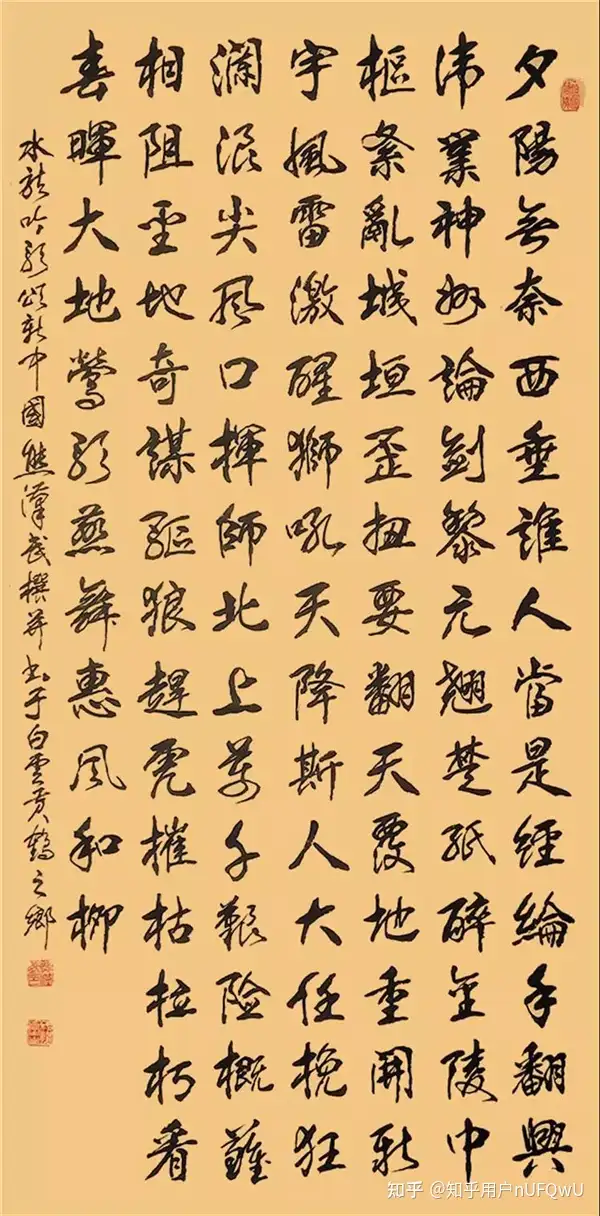 夕陽無奈西垂誰人當是經綸手翻興
偉業神州論劍黎元翹楚紙醉金陵中
樞紊亂城垣歪扭要翻天覆地重開新
宇風雷激醒獅吼天降斯人大任挽狂
瀾浪尖风口揮師北上萬千艱險概難
相阻聖地奇謀驅狼趕虎摧枯拉朽看
春暉大地鶯歌燕舞惠风和柳
水龍吟歌頌新中國熊漢武撰并書于白雲黃鶴之鄉
知乎 @知乎用户nUFQwU